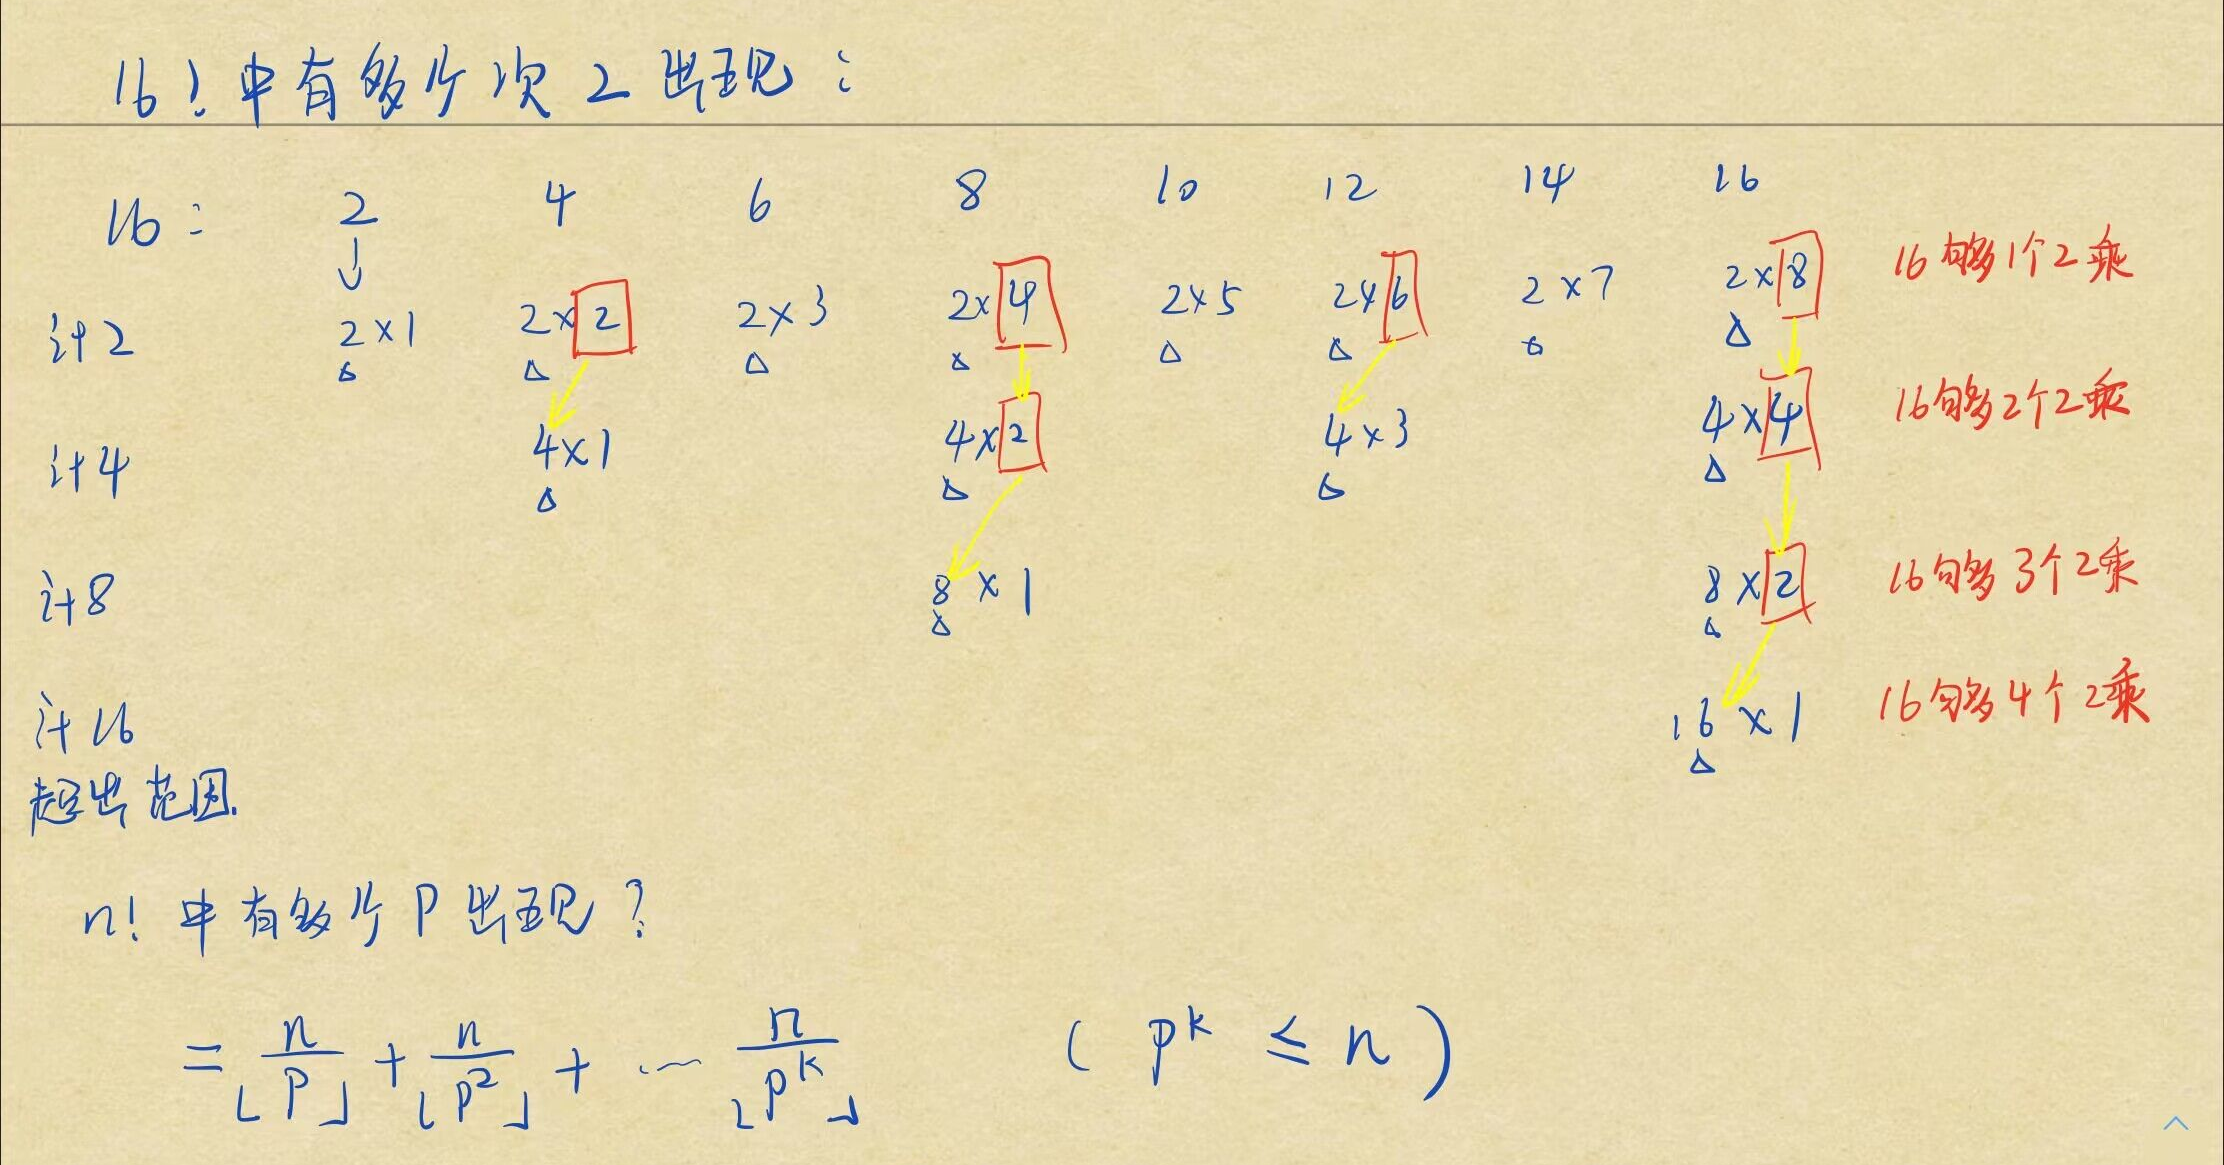 16!中有多少次2出现:
16: 2 4 6 8 10 12 14 16
计2 2×1 2×2 2×3 2×4 2×5 2×6 2×7 2×8 16够多1个2乘
计4 4×1 4×2 4×3 4×4 16够多2个2乘
计8 8×1 8×2 16够多3个2乘
计16 16×1 16够多4个2乘
超出范围.
n!中有多少个P出现?
=⌊n/P⌋+⌊n/P²⌋+…⌊n/P^k⌋ (P^k≤n)